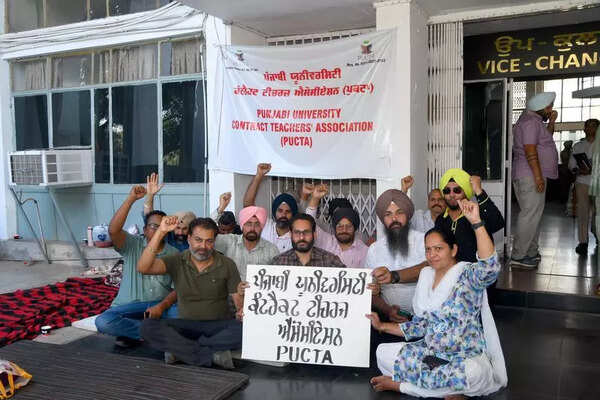 ਪੰਜਾਬੀ ਯੂਨੀਵਰਸਿਟੀ
ਕੰਟਰੈਕਟ ਟੀਚਰਜ਼ ਐਸੋਸੀਏਸ਼ਨ (ਪੁਕਟਾ)
PUNJABI UNIVERSITY
CONTRACT TEACHERS' ASSOCIATION
(PUCTA)
ਉਪ - ਕੁਲ
VICE-CHAN
ਪੰਜਾਬੀ ਯੂਨੀਵਰਸਿਟੀ
ਕੰਟਰੈਕਟ ਟੀਚਰਜ਼
ਐਸੋਸੀਏਸ਼ਨ
PUCTA